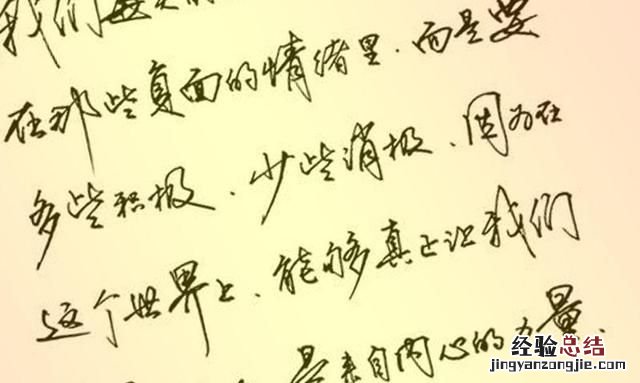 我们每天的
在那些负面的情绪里.而是要
多些积极、少些消极、因为在
这个世界上、能够真正认识我们
是来自内心的力量.
经验总结
jingyanzongjie.com